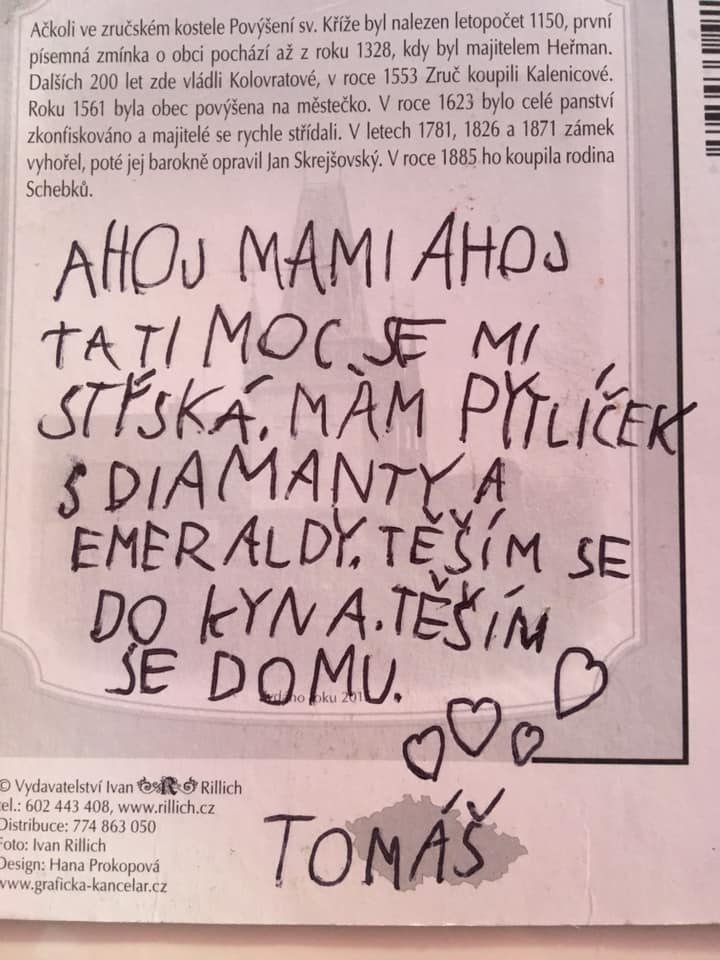 Ačkoli ve zručském kostele Povýšení sv. Kříže byl nalezen letopočet 1150, první
písemná zmínka o obci pochází až z roku 1328, kdy byl majitelem Heřman.
Dalších 200 let zde vládli Kolovratové, v roce 1553 Zruč koupili Kalenicové.
Roku 1561 byla obec povýšena na městečko. V roce 1623 bylo celé panství
zkonfiskováno a majitelé se rychle střídali. V letech 1781, 1826 a 1871 zámek
vyhořel, poté jej barokně opravil Jan Skrejšovský. V roce 1885 ho koupila rodina
Schebků.
AHOJ MAMI AHOJ
TATI MOC SE MI
STÝSKÁ. MÁM PYTLÍČEK
S DIAMANTY A
EMERALDY. TĚŠÍM SE
DO KYNA. TĚŠÍM
SE DOMU.
roku
© Vydavatelství Ivan Rillich
tel.: 602 443 408, www.rillich.cz
Distribuce: 774 863 050
Foto: Ivan Rillich
Design: Hana Prokopová
www.graficka-kancelar.cz
TOMÁŠ